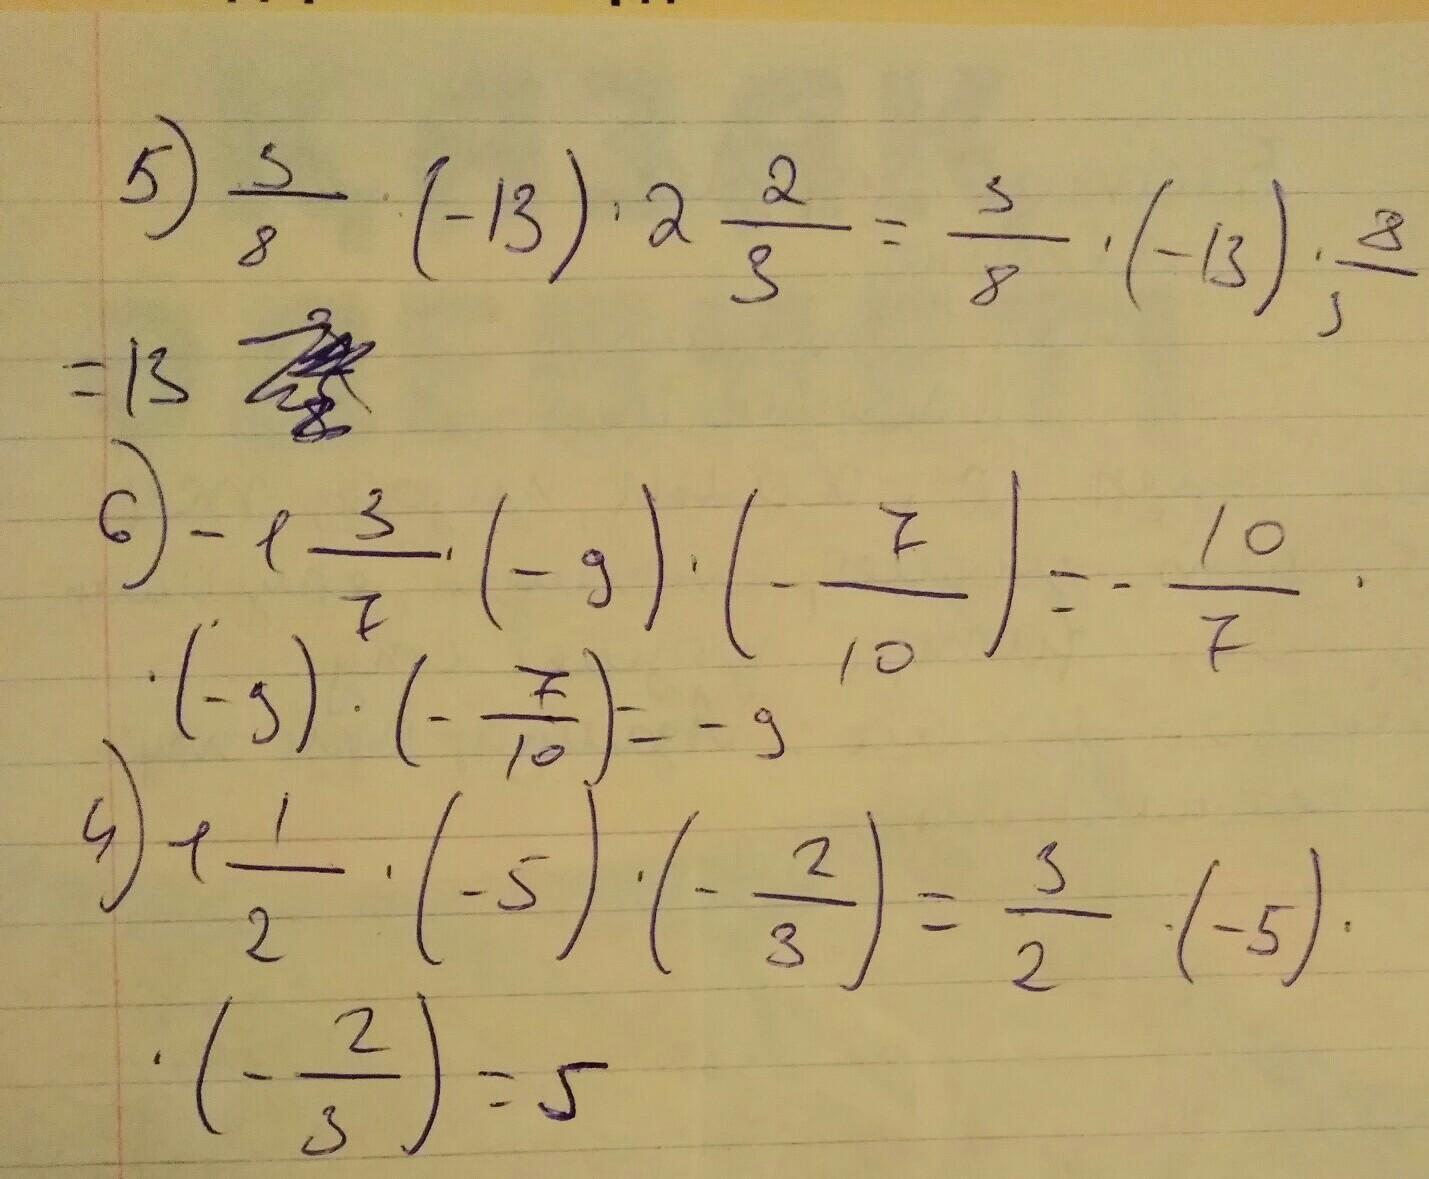 5) 3/8 · (-13) · 2 2/3 = 3/8 · (-13) · 8/3
= 13
6) - 1 3/7 · (-9) · (- 7/10) = - 10/7 ·
· (-9) · (- 7/10) = - 9
4) 1 1/2 · (-5) · (- 2/3) = 3/2 · (-5) ·
· (- 2/3) = 5